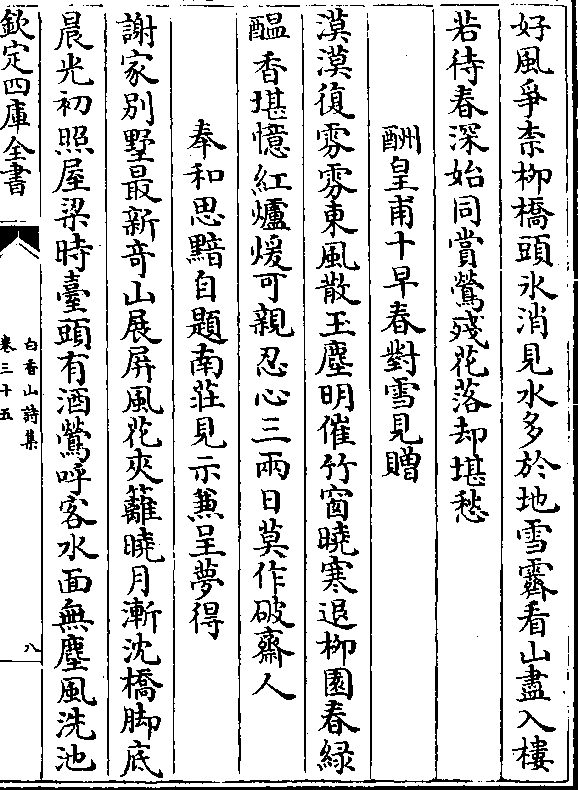 好風爭柰柳橋頭氷消見水多於地雪霽看山盡入樓
若待春深始同賞鶯殘花落却堪愁
酬皇甫十早春對雪見贈
漠漠復雰雰東風散玉塵明催竹窗曉寒退柳園春緑
醖香堪憶紅爐煖可親忍心三兩日莫作破齋人
奉和思黯自題南莊見示兼呈夢得
謝家别墅最新竒山展屏風花夾籬曉月漸沈橋脚底
晨光初照屋梁時臺頭有酒鶯呼客水面無塵風洗池
欽定四庫全書
白香山詩集
卷三十五
八